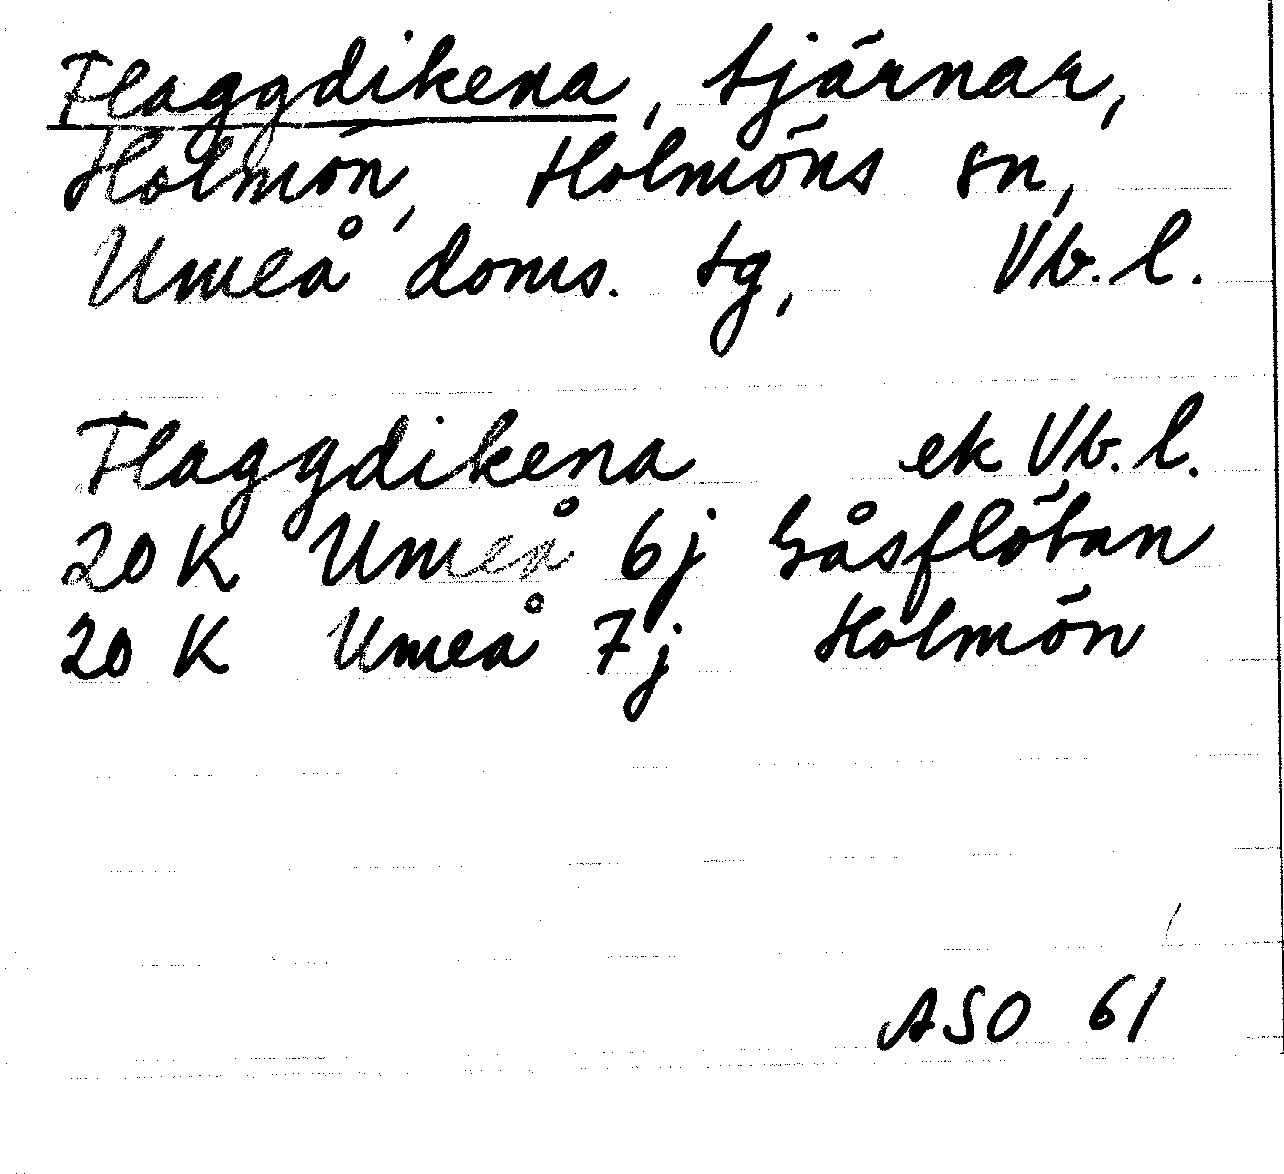 Flaggdikena, tjärnar,
Holmön, Holmöns sn,
Umeå doms. tg, Vb. l.
Flaggdikena ek Vb. l.
20 K Umeå 6j Gåsflötan
20 K Umeå 7j Holmön
ASO 61